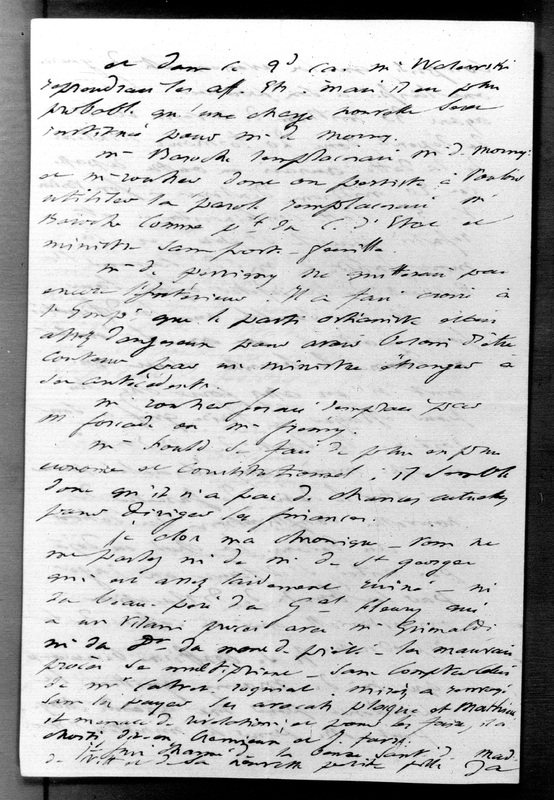 et dans ce 9d cas Mr Walewski
reprendrait les aff. Et. mais il est plus
probable qu'une charge nouvelle sera
instituée pour Mr de Morny.
Mr Baroche remplacerait Mr de Morny
et Mr Rouher dont on persiste à vouloir
utiliser la parole remplacerait Mr
Baroche comme pt du C. d'Etat et
ministre sans porte-feuille.
Mr de Persigny ne quitterait pas
encore l'Intérieur. Il a fait croire à
l'Emp. que le parti orléaniste était
assez dangereux pour avoir besoin d'être
contenu par un ministre étranger à
ses antécédents.
Mr Rouher serait remplacé par
M Forcade ou Mr Frémy.
Mr Fould se fait de plus en plus
économe et constitutionnel; il semble
donc qu'il n'a pas de chances actuelles
pour diriger les finances.
Je clos ma chronique - Vous ne
me parlez ni de Mr de St Georges
qui est assez laidement ruiné - ni
du beau-père du Gal Fleury qui
a un vilain procès avec Mr Grimaldi
ni du du mont de piété - les mauvais
procès se multiplient - sans compter celui
de Mr Calvet Rogniat. Mirès a
sans les payer ses avocats Plocque et Mathieu
il menace de révélations et pour les faire, il a
choisi dit-on Crémieux et J. Favre.
Je suis charmé de la bonne santé de Mad.
de et de sa nouvelle petite fille